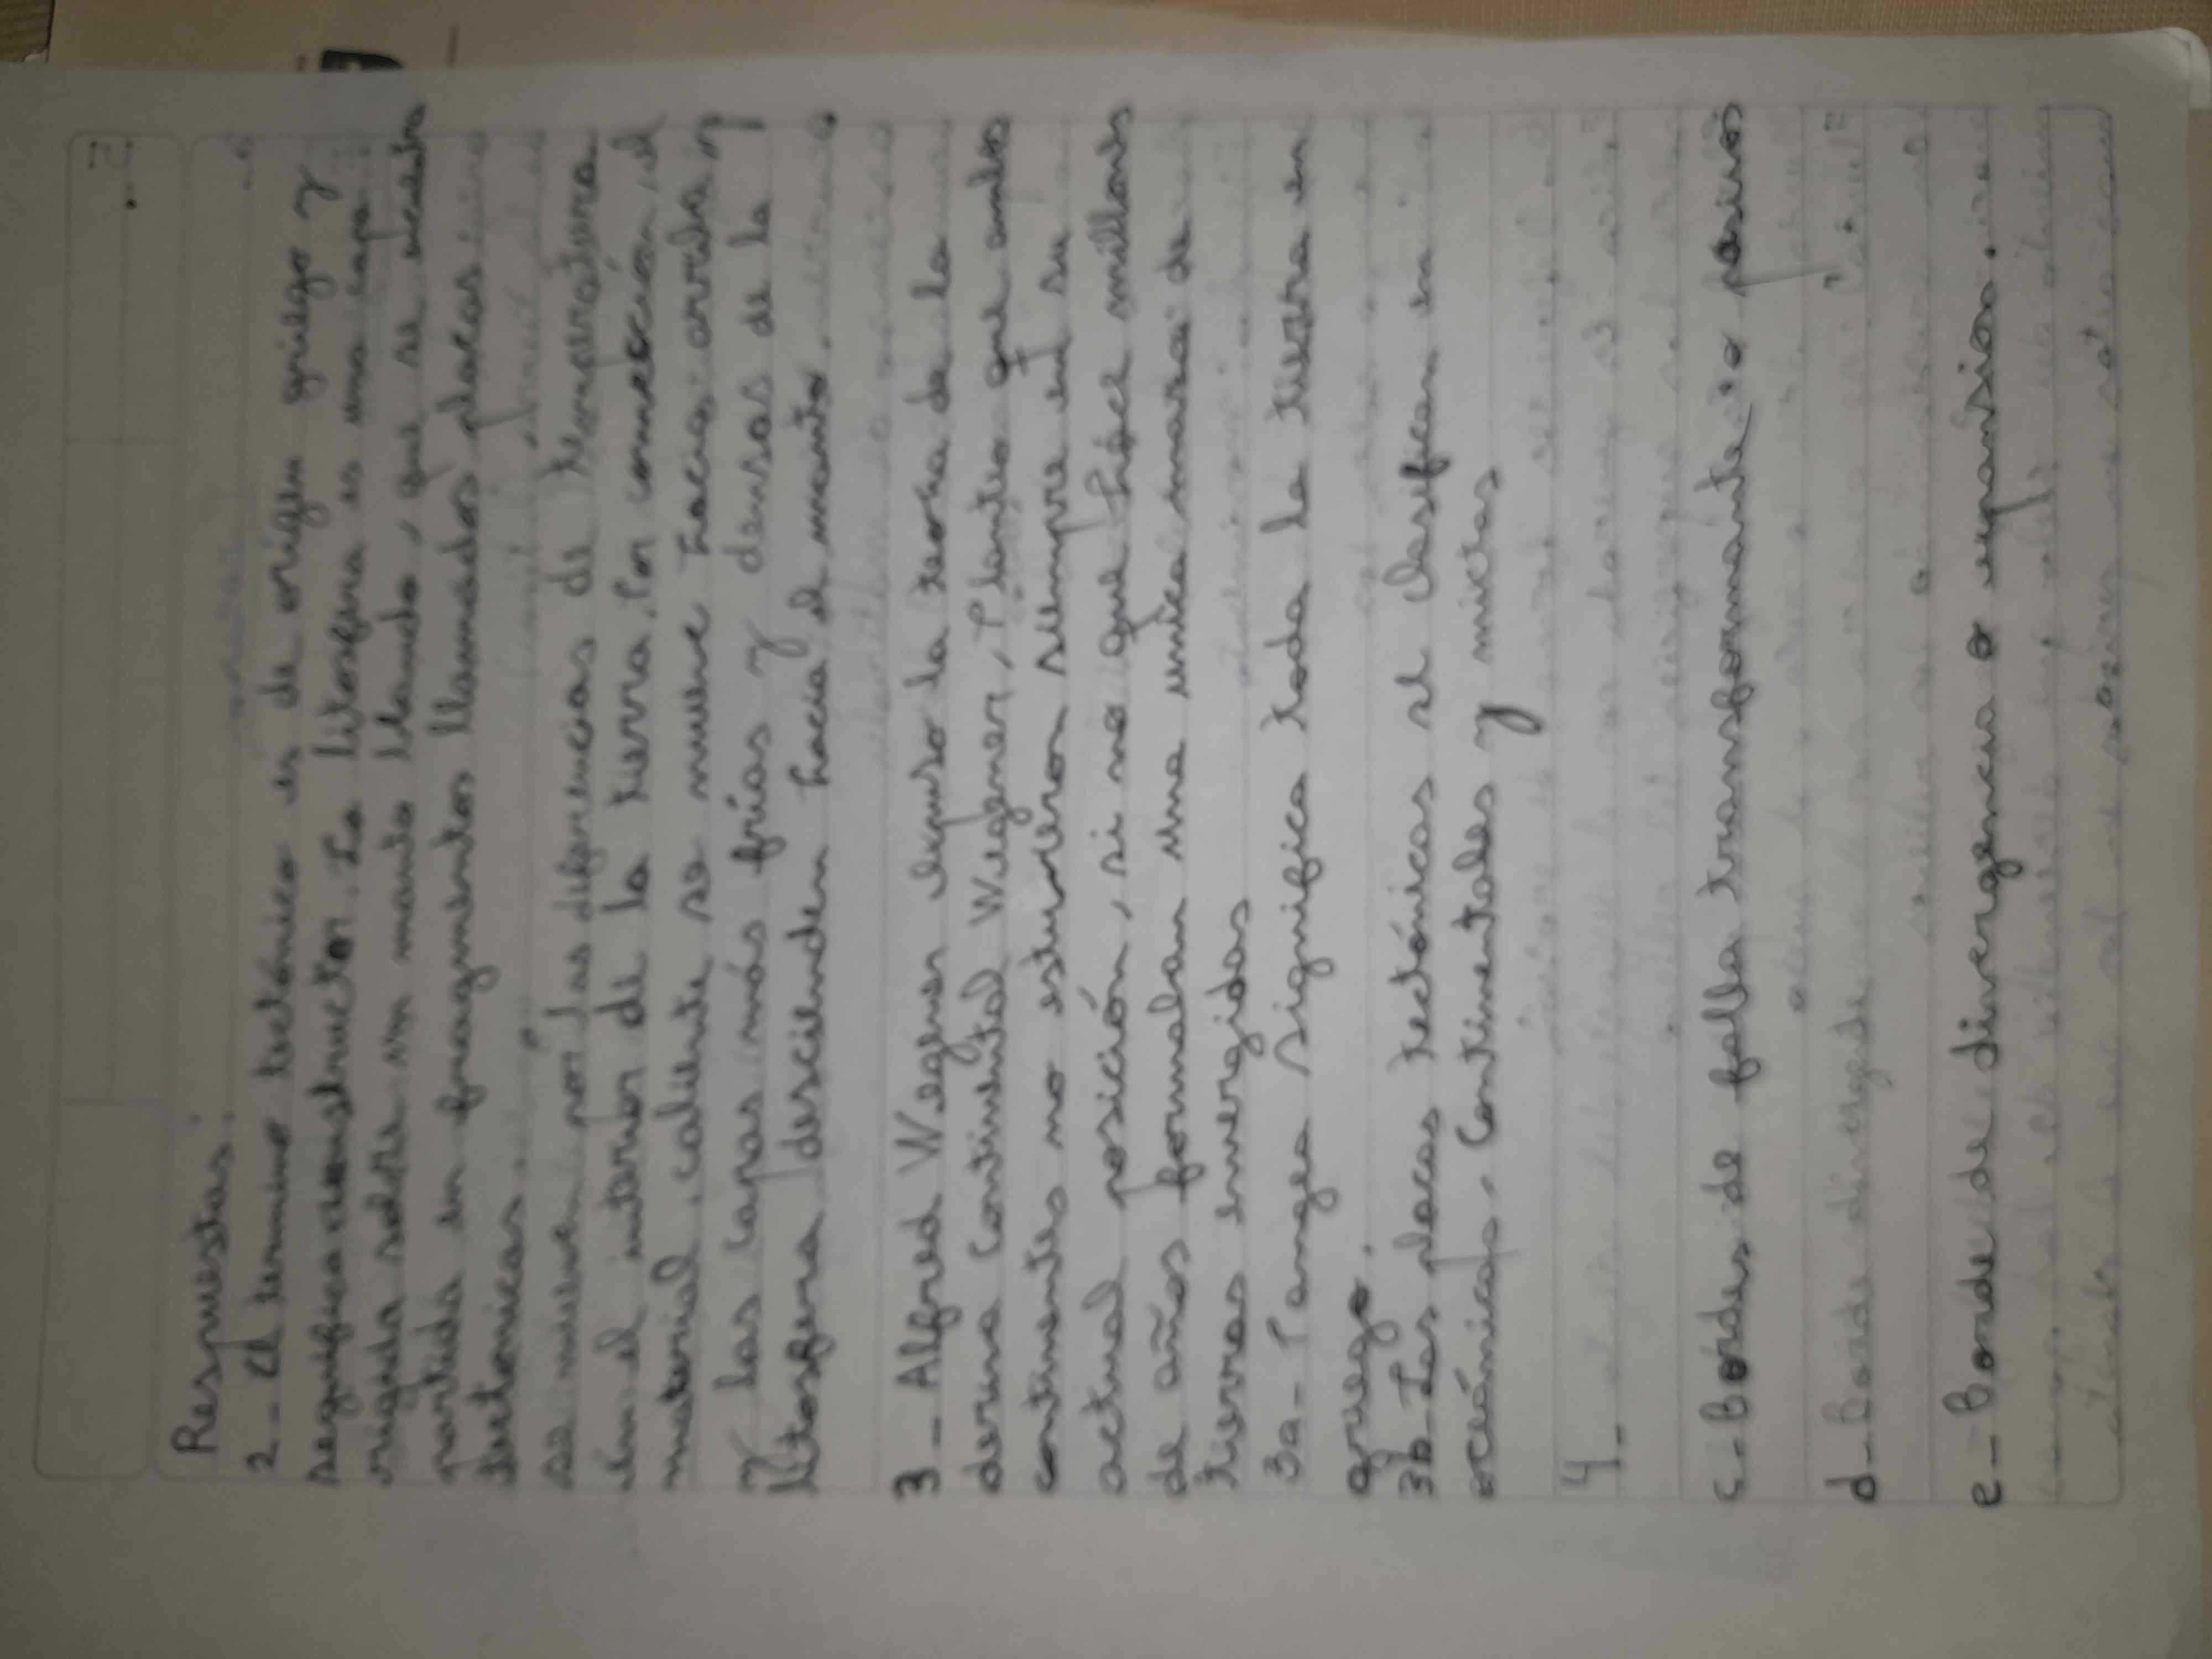 Respuestas:
2- El termino tectónico es de origen griego y
significa constructor. La litosfera es una capa
rigida sobre un manto blando, que se encuentra
partida en fragmentos llamados placas
tectonicas.
se mueven por las diferencias de temperatura
en el interior de la tierra. Por convección, el
material caliente se mueve hacia arriba
y las capas más frías y densas de la
litosfera descienden hacia el manto.
3- Alfred Wegener expuso la teoria de la
deriva continental Wegener, Planteo que
continentes no estuvieron siempre en su
actual posición, si no que hace millones
de años formaban una unica masa de
tierras emergidas
3a- Pangea significa toda la tierra en
griego.
3b- Las placas tectónicas se clasifican en
oceánicas, continentales y mixtas
4-
c- Bordes de falla transformante o pasivos
d- Borde divergede
e- Borde de divergencia o expansion.